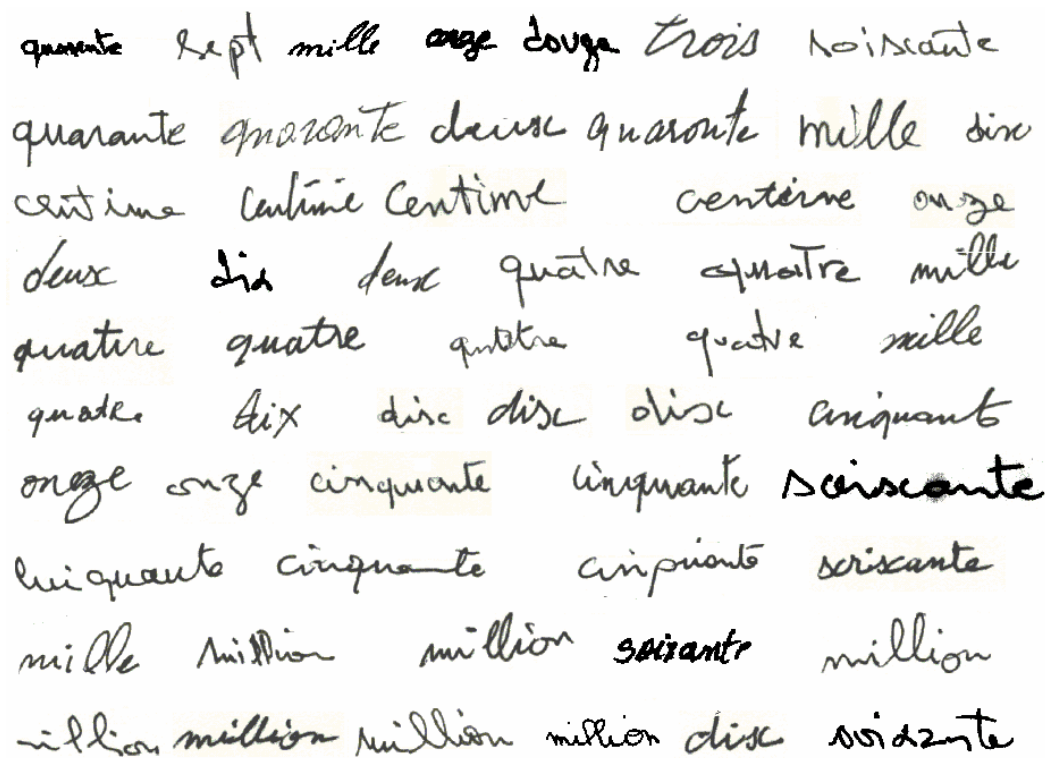 quarante sept mille onze douze trois soixante
quarante quarante deux quaronte mille dix
centime Centime Centime centime onze
deux dix deux quatre quatre mille
quatre quatre quatre quatre mille
quatre dix dix dix dix cinquante
onze onze cinquante cinquante soixante
cinquante cinquante cinquante soixante
mille million million soixante million
million million million million dix soixante